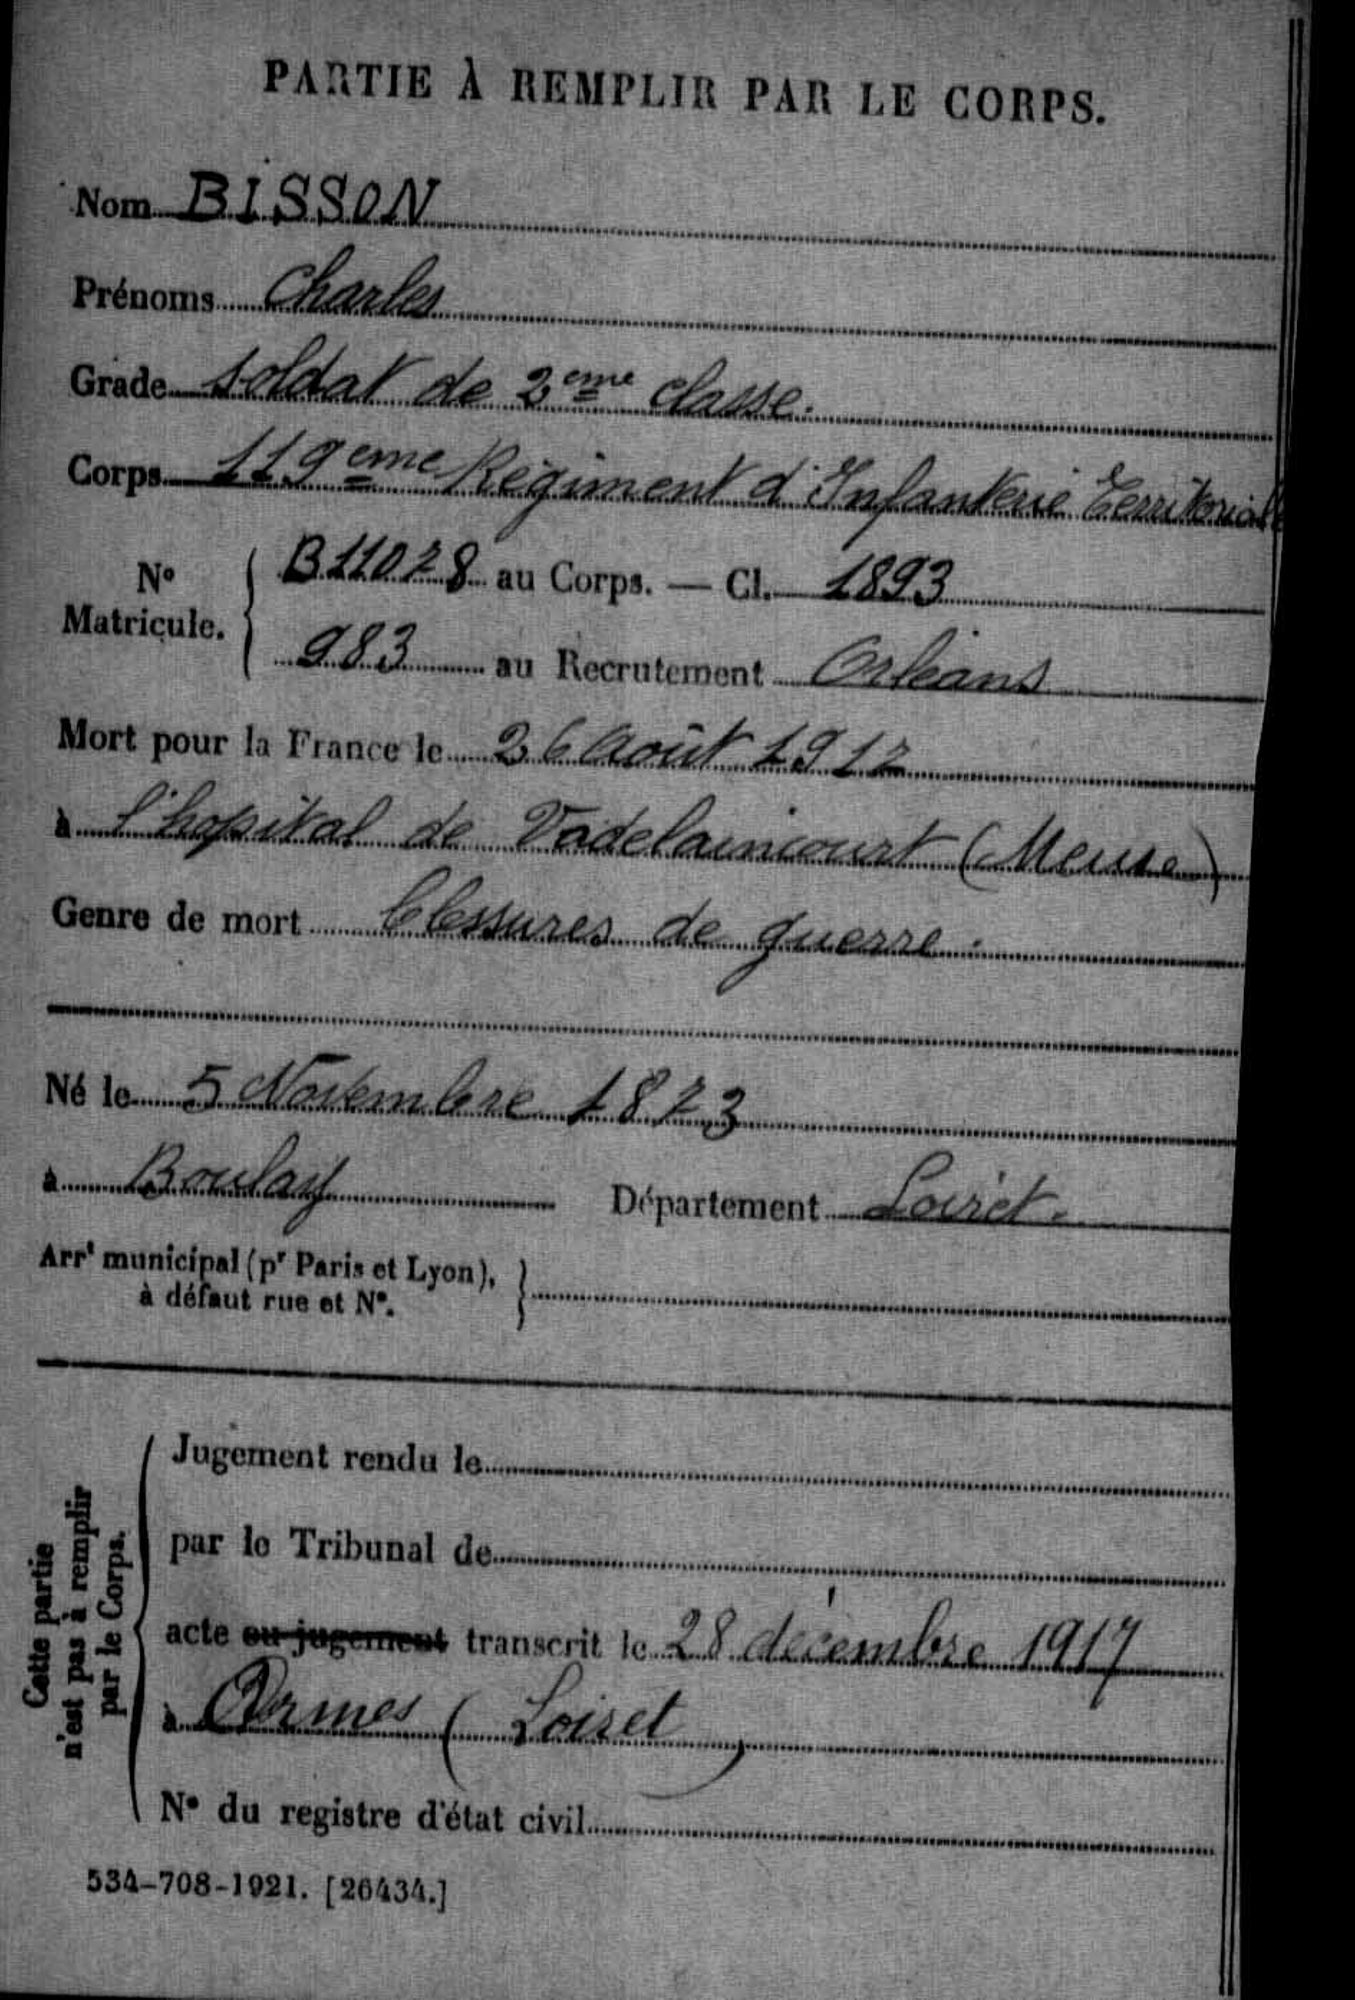 PARTIE À REMPLIR PAR LE CORPS.
Nom BISSON
Prénoms Charles
Grade soldat de 2eme classe.
Corps 119eme Régiment d'Infanterie Territoriale
No Matricule. B11078 au Corps. — Cl. 1893
983 au Recrutement Orléans
Mort pour la France le 26 Août 1917
à l'hopital de Vadelaincourt (Meuse)
Genre de mort blessures de guerre.
Né le 5 Novembre 1873
à Boulay Département Loiret.
Arrt municipal (pr Paris et Lyon),
à défaut rue et No.
Cette partie
n'est pas à remplir
par le Corps.
Jugement rendu le
par le Tribunal de
acte ou jugement transcrit le 28 décembre 1917
à Ormes (Loiret)
No du registre d'état civil
534-708-1921. [26434.]